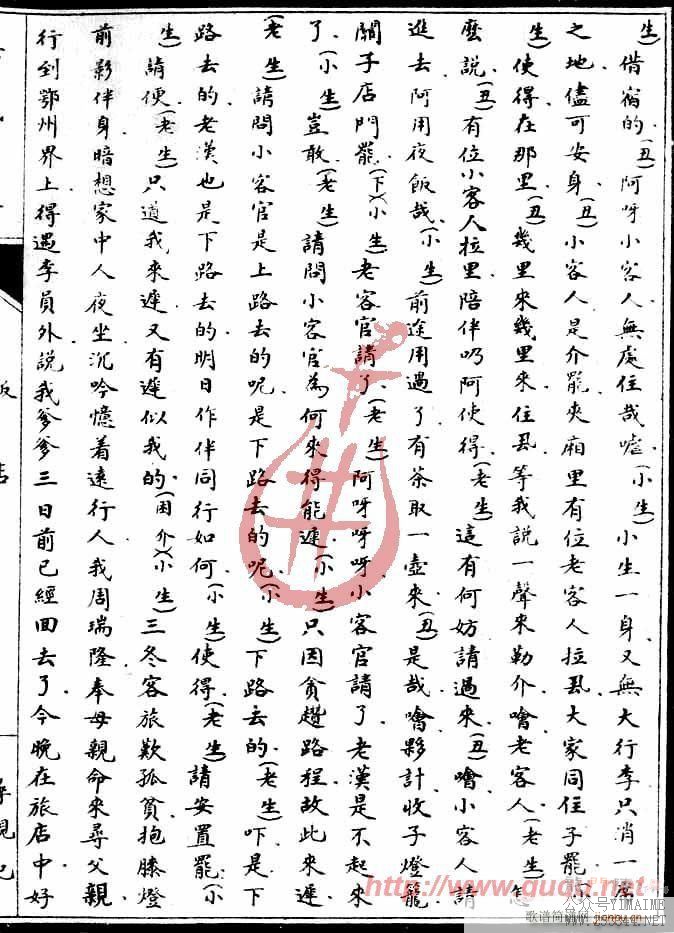 生)借宿的(丑)阿呀小客人無處住哉嘘(小生)小生一身又無大行李只消一席
之地儘可安身(丑)小客人是介罷夾廂里有位老客人拉厾大家同住子罷(小
生)使得在那里(丑)幾里來幾里來住厾等我說一聲來勒介噲老客人(老生)怎
麽說(丑)有位小客人拉里陪伴吶阿使得(老生)這有何妨請過來(丑)噲小客人請
進去阿用夜飯哉(小生)前途用過了有茶取一壺來(丑)是哉噲夥計收子燈籠
關子店門罷(下)(小生)老客官請了(老生)阿呀呀呀小客官請了老漢是不起來
了(小生)豈敢(老生)請問小客官為何來得能遲(小生)只因貪趲路程故此來遲
(老生)請問小客官是上路去的呢是下路去的呢(小生)下路去的(老生)吓是下
路去的老漢也是下路去的明日作伴同行如何(小生)使得(老生)請安置罷(小
生)請便(老生)只道我來遲又有遲似我的(困介)(小生)三冬客旅歎孤貧抱膝燈
前影伴身暗想家中人夜坐沉吟憶着遠行人我周瑞隆奉母親命來尋父親
行到鄂州界上得遇李員外說我爹爹三日前已經回去了今晚在旅店中好
飯
店
尋親記
http://www.guqu.net
歌谱简谱网 jianpu.cn
公众号YIMAIME